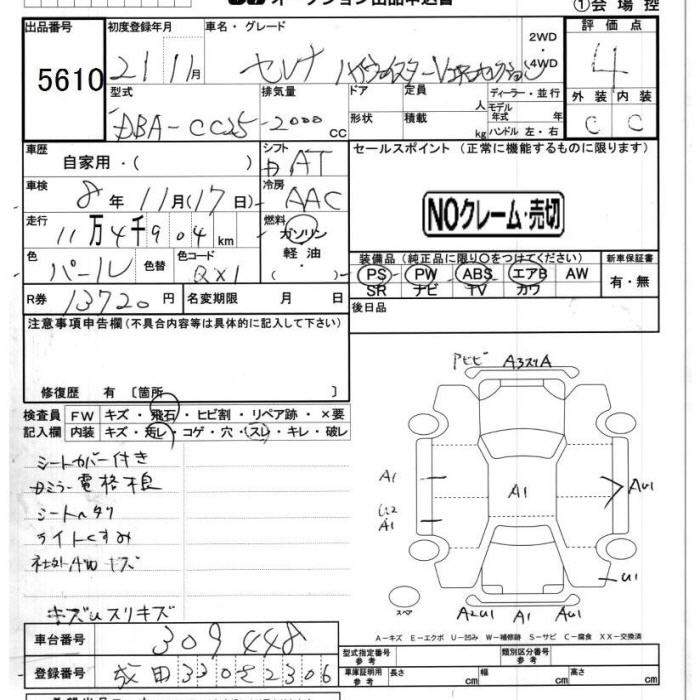 オークション出品申込書
①会場控
出品番号 5610
初度登録年月 21 11月
車名・グレード セレナ ハイウェイスターVエアロセレクション
2WD・4WD
評価点 4
外装 C 内装 C
型式 DBA-CC25
排気量 2000cc
ドア
形状
定員 人
積載 kg
ディーラー・並行
モデル年式 年
ハンドル 左・右
車歴 自家用・( )
シフト AT
セールスポイント (正常に機能するものに限ります)
車検 8年11月(17日)
冷房 AAC
NOクレーム・売切
走行 11万4千904km
燃料 ガソリン 軽油・( )
色 パール 色替
色コード QX1
装備品 (純正品に限り○をつけてください)
PS PW ABS エアB AW
SR ナビ TV カワ
新車保証書 有・無
R券 13720円
名変期限 月 日
後日品
注意事項申告欄 (不具合内容等は具体的に記入して下さい)
修復歴 有 [箇所 ]
検査員記入欄
FW キズ・飛石・ヒビ割・リペア跡・×要
内装 キズ・汚レ・コゲ・穴・スレ・キレ・破レ
シートカバー付き
ミラー電格不良
シートヘタリ
ライトくすみ
社外AW キズ
キズUスリキズ
Aビビ A3スリA
A1
A1
AU1
A1
U1
スペア
A2U1 A1 AU1
A-キズ E-エクボ U-凹み W-補修跡 S-サビ C-腐食 XX-交換済
車台番号 309448
登録番号 成田330さ2306
型式指定番号 参考
類別区分番号 参考
車庫証明用 参考 長さ cm 幅 cm 高さ cm